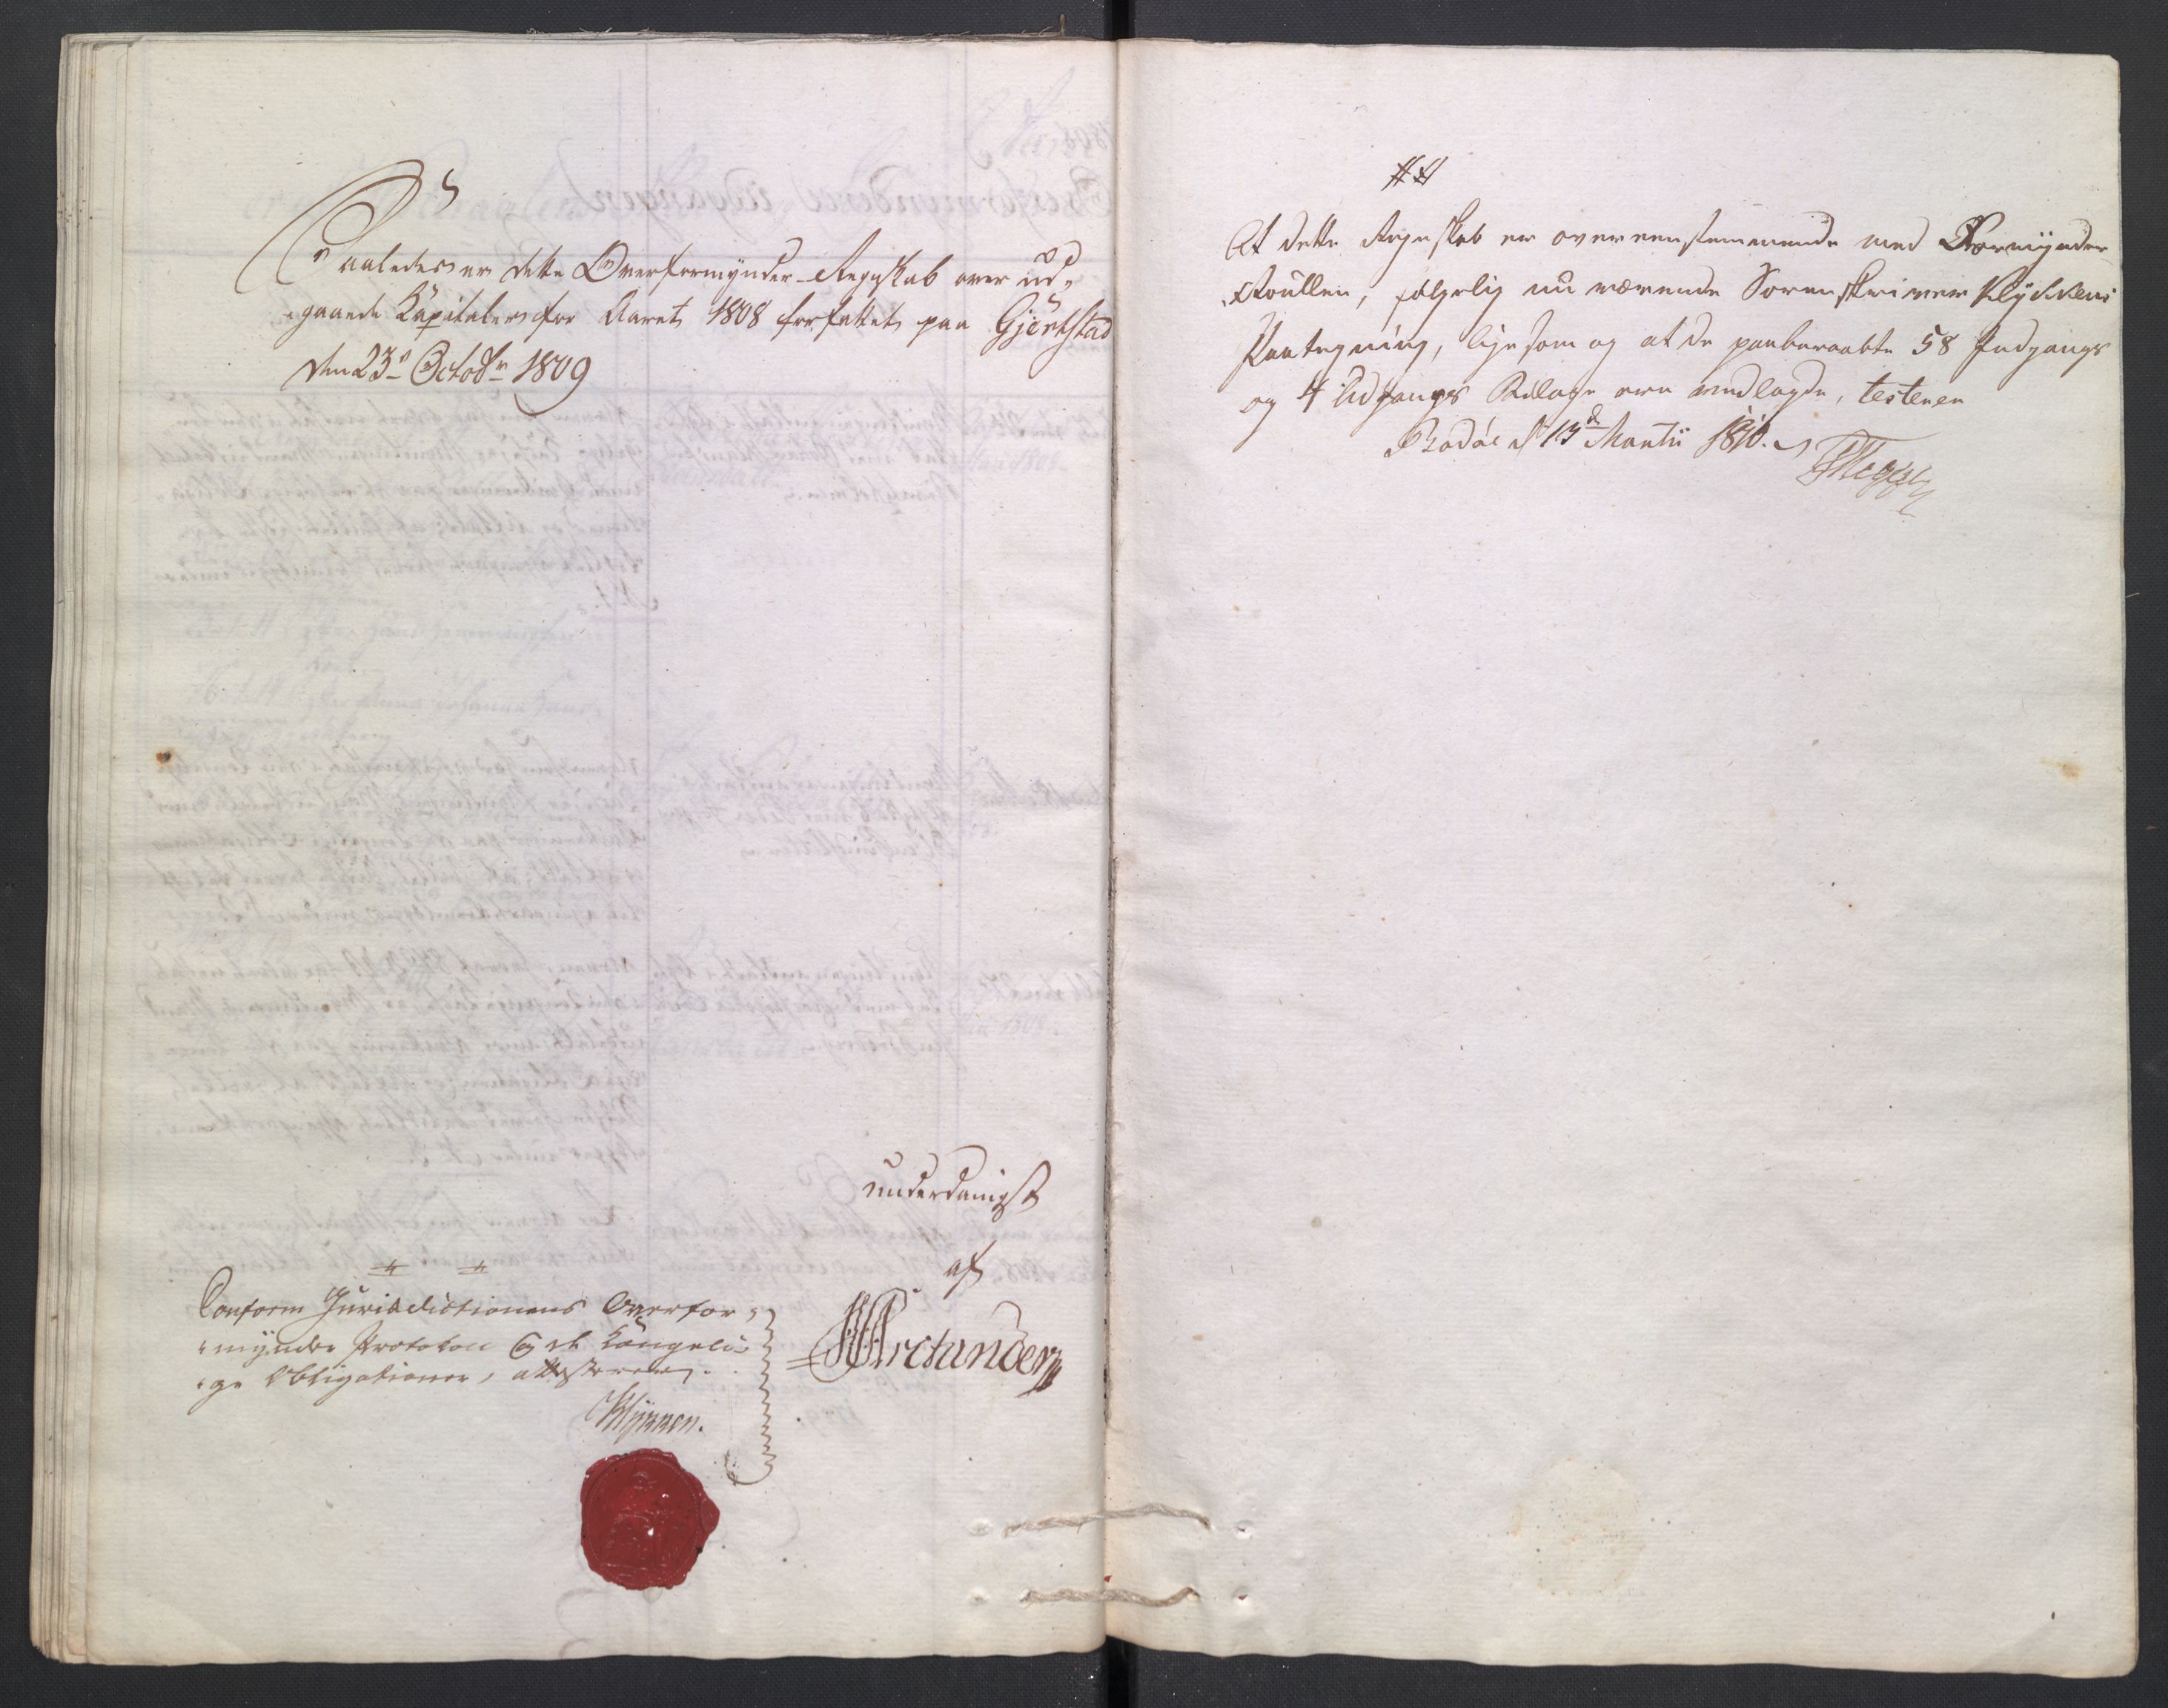 Saaledes er dette Overformynder-Regnskab over ud-
gaaende Capitaler for Aaret 1808 forfattet paa Gjertstad
den 23de Octobr 1809
underdanigst
af
Arctander
Conform Jurisdictionens Overfor-
mynder Protocol og de Kongeli-
ge Obligationer, attesterer
At dette Regnskab er overeensstemmende med Formynder
Roullen, følgelig nu værende Sorenskriver
Paategning, lige som og at de paaberaabte 58 Indgangs
og 4 Udgangs Bilage ere vedlagde, testerer
Bodöe d 13de Martii 1810.